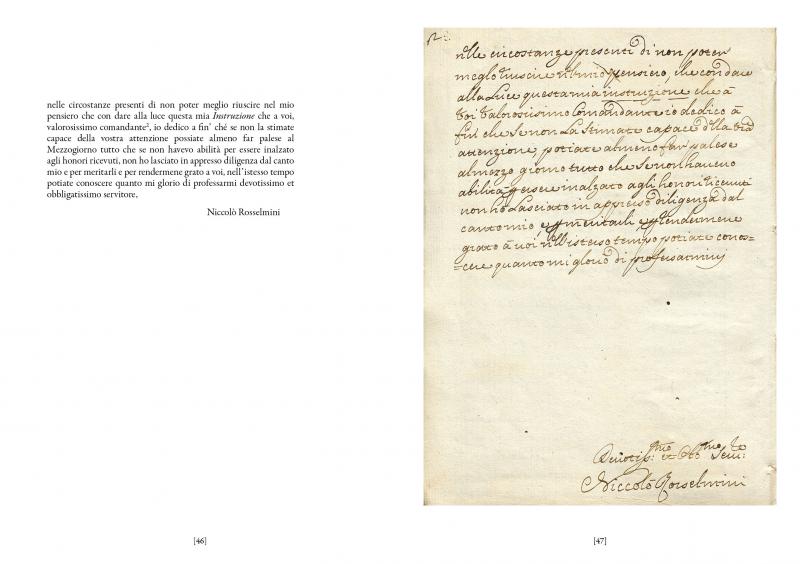 nelle circostanze presenti di non poter meglio riuscire nel mio
pensiero che con dare alla luce questa mia Instruzione che a voi,
valorosissimo comandante², io dedico a fin' ché se non la stimate
capace della vostra attenzione possiate almeno far palese al
Mezzogiorno tutto che se non havevo abilità per essere inalzato
agli honori ricevuti, non ho lasciato in appresso diligenza dal canto
mio e per meritarli e per rendermene grato a voi, nell'istesso tempo
potiate conoscere quanto mi glorio di professarmi devotissimo et
obbligatissimo servitore.
Niccolò Rosselmini
[46]
nelle circostanze presenti di non poter
meglo riuscire nel mio pensiero, che con dare
alla Luce questa mia instruzione che à
Voi Valorosissimo Comandante io dedico à
fin che se non La stimate capace della vr̃a
attenzione potiate almeno far palese
al mezzo giorno tutto che se non havevo
abilità p essere inalzato agli honori ricevuti
non hò Lasciato in appresso diligenza dal
canto mio, e p meritarli e p rendermene
grato à voi nell istesso tempo potiate conos=
=cere quanto mi glorio di professarmi
Devotiss:mo et Ob:mo Serv:re
Niccolò Rosselmini
[47]